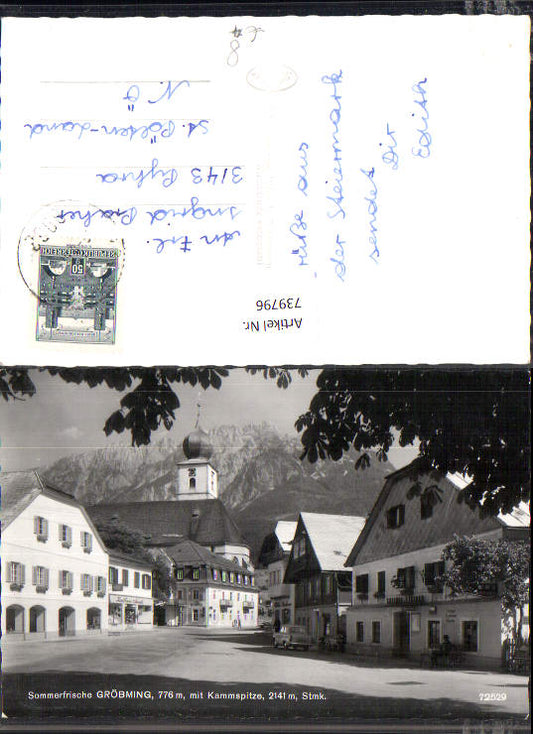 Grüße aus
der Steiermark
sendet Dir
Edith
REPUBLIK ÖSTERREICH
50
An Frl.
Ingrid
3143 Pyhra
St. Pölten-Land
N.Ö
Artikel Nr.
739796
Sommerfrische GRÖBMING, 776 m, mit Kammspitze, 2141 m, Stmk.
72529